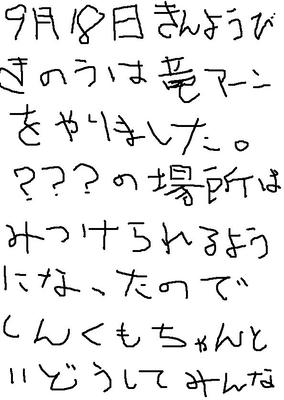 9月18日 きんようび
きのうは竜アーン
をやりました。
???の場所は
みつけられるよう
になったので
しんくもちゃんと
いどうしてみんな